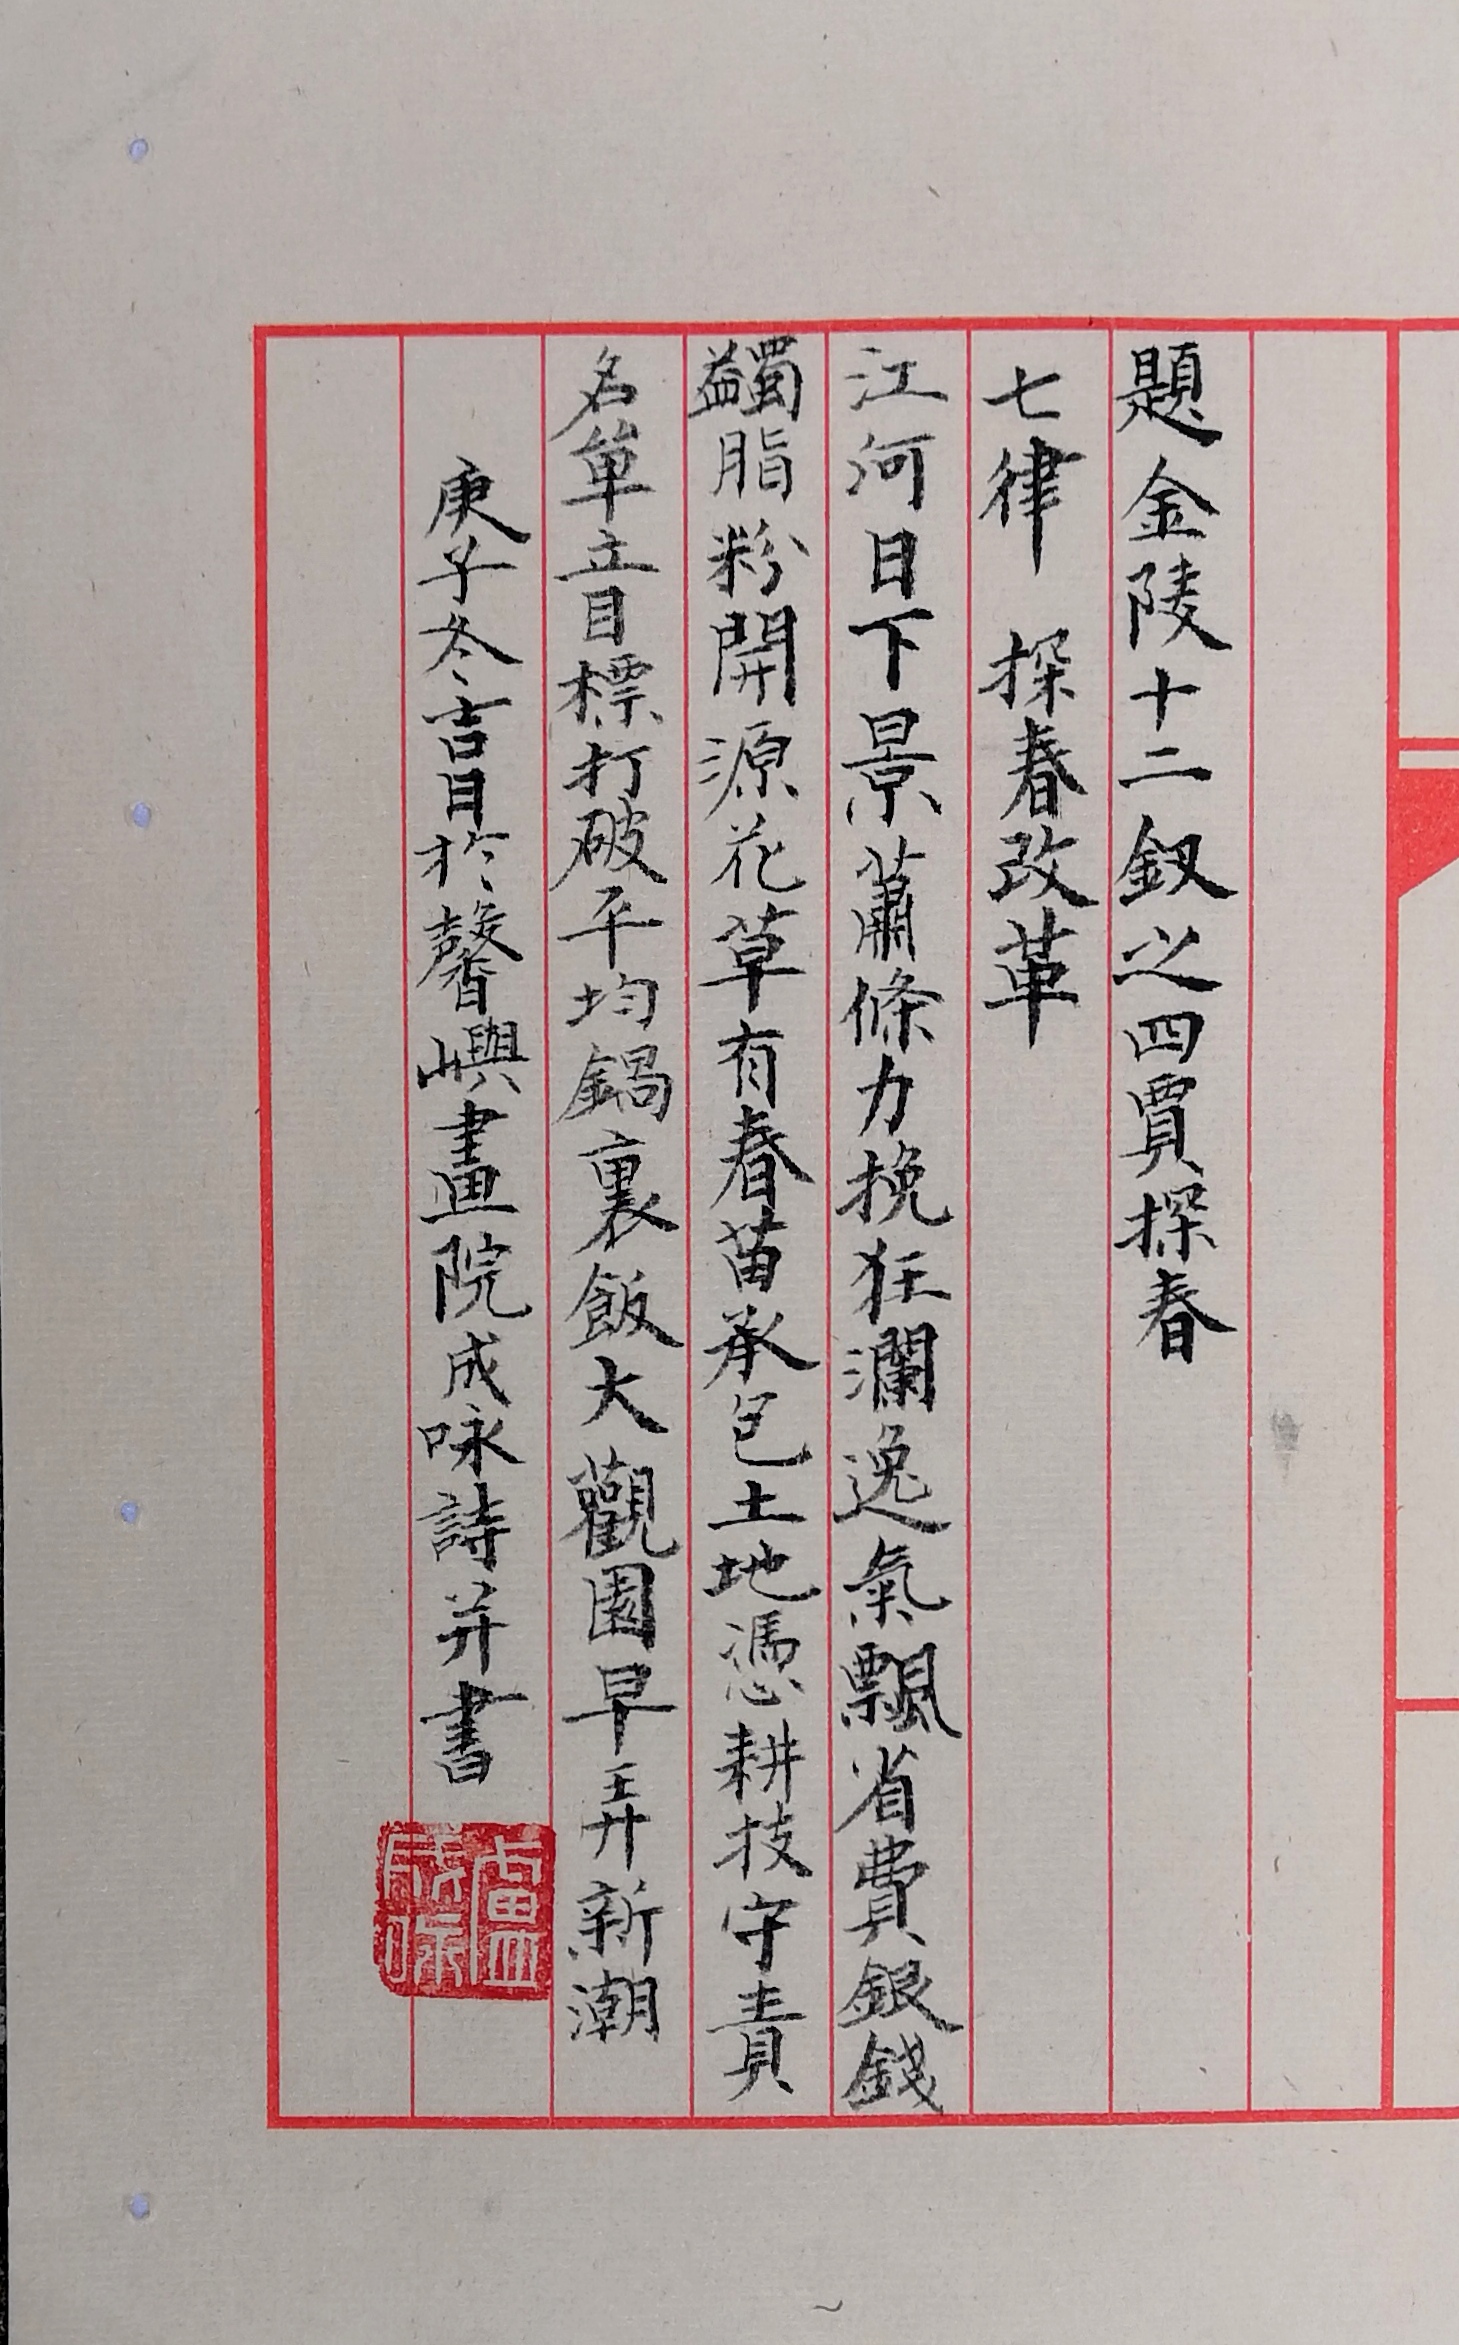 題金陵十二釵之四賈探春
七律　探春改革
江河日下景蕭條力挽狂瀾逸氣飄省費銀錢
蠲脂粉開源花草有春苗承包土地憑耕技守責
名單立目標打破平均鍋裏飯大觀園早弄新潮
庚子冬吉日於馨嶼畫院成咏詩并書
盧成咏